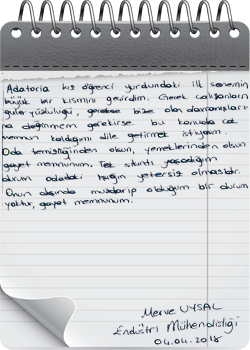 Adatoria kız öğrenci yurdundaki ilk senemin
büyük bir kısmını geçirdim. Gerek çalışanların
güler yüzlülüğü, gerekse bize olan davranışları
na değinmem gerekirse bu konuda çok
memnun kaldığımı dile getirmek istiyorum.
Oda temizliğinden olsun, yemeklerinden olsun
gayet memnunum. Tek sıkıntı yaşadığım
durum odadaki ışığın yetersiz olmasıdır.
Onun dışında muzdarip olduğum bir durum
yoktur, gayet memnunum.
Merve UYSAL
Endüstri Mühendisliği
04.04.2018